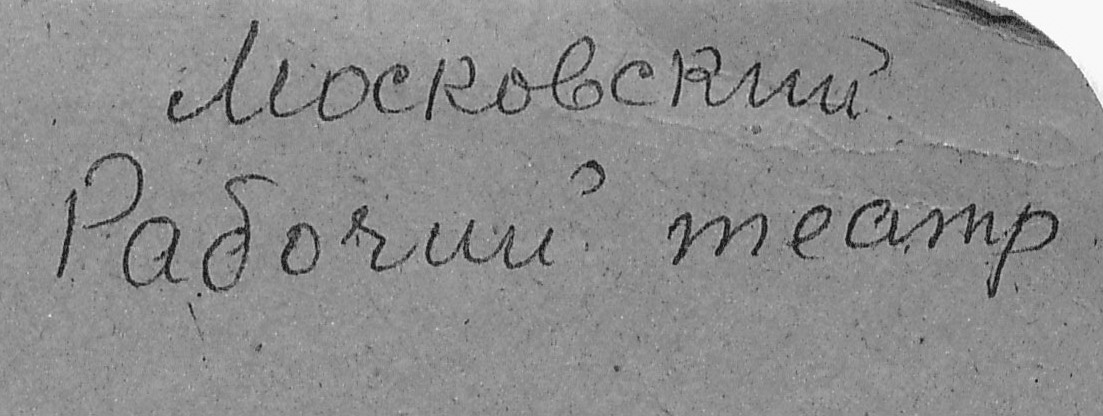 Московский
Рабочий театр